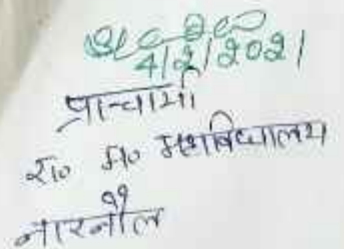 4/2/2021
प्राचार्या
रा० म० महाविद्यालय
नारनौल